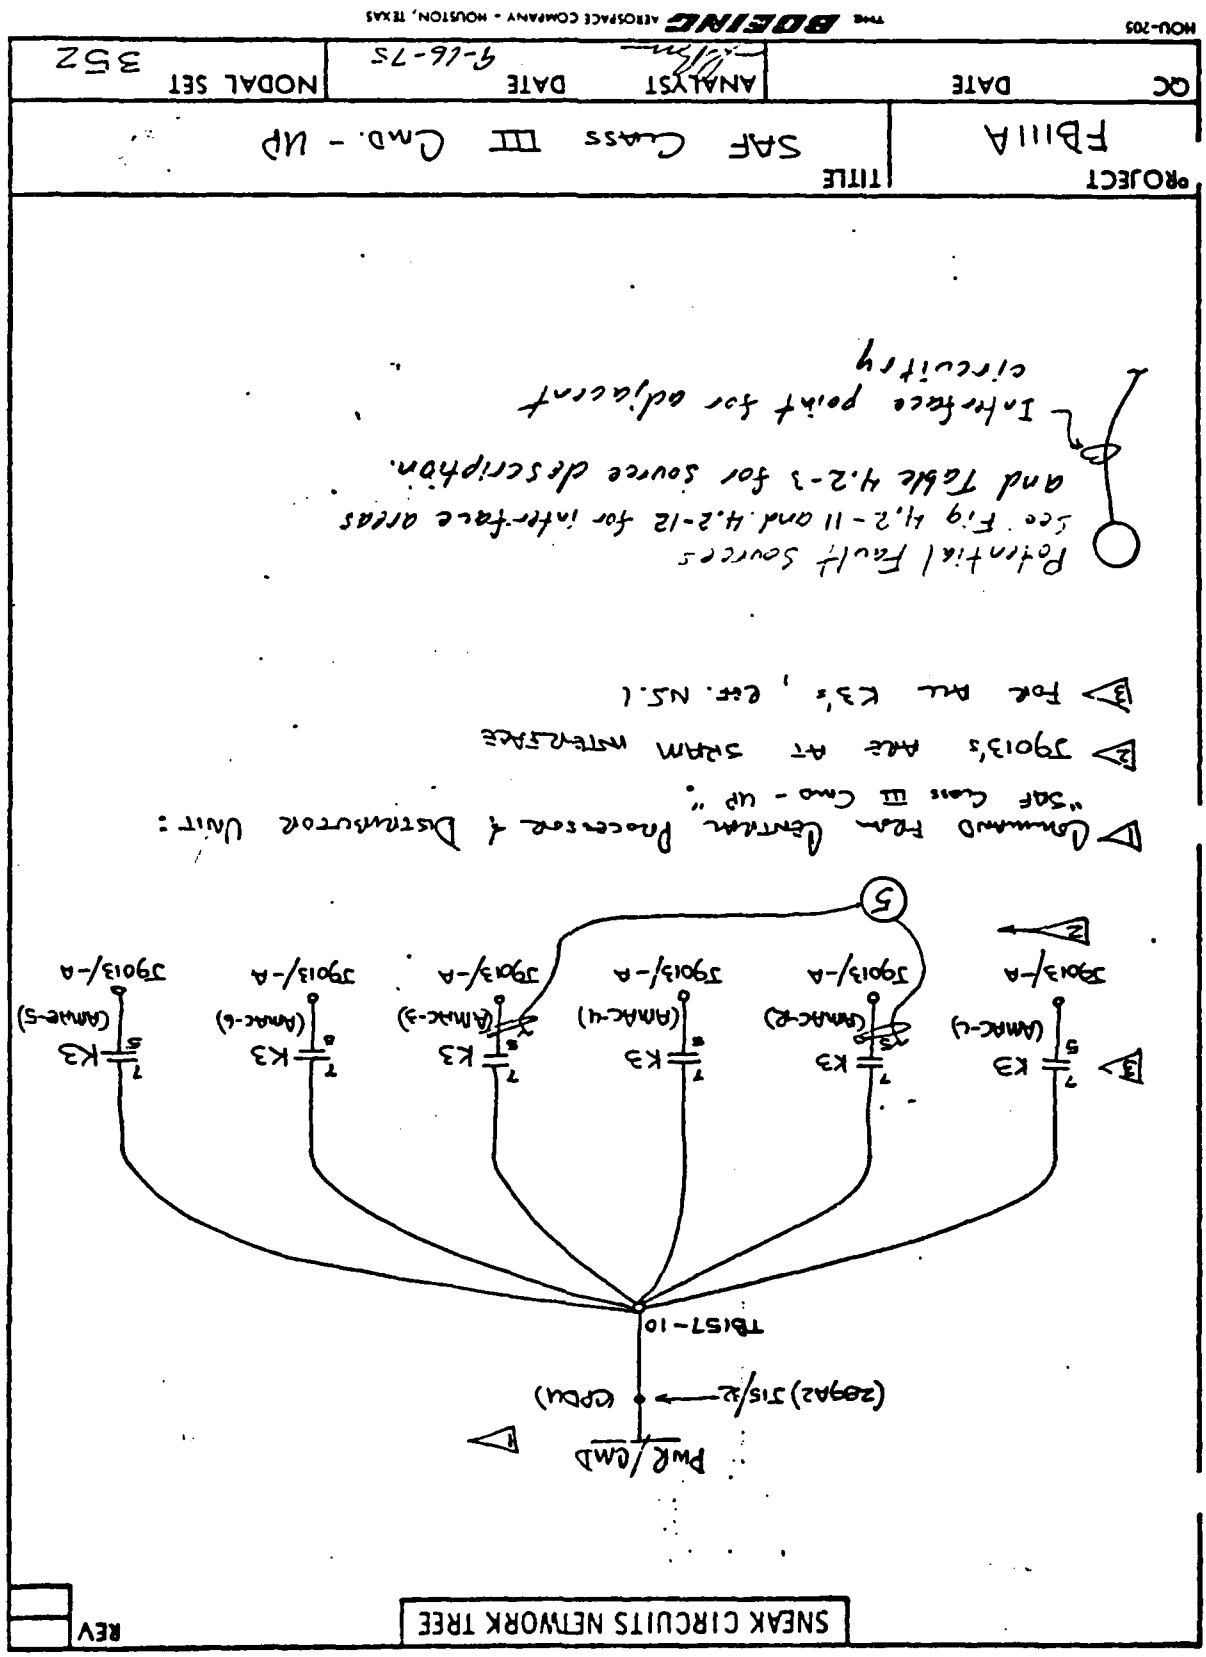 SNEAK CIRCUITS NETWORK TREE
REV
PWR/CMD
1
(289A2) J15/32
(CPDU)
TB157-10
7 7 7 7 7 7
3
K3 K3 K3 K3 K3 K3
5 8 8 8 5
(AMAC-5) (AMAC-6) (AMAC-3) (AMAC-4) (AMAC-2) (AMAC-1)
J9013/-A J9013/-A J9013/-A J9013/-A J9013/-A J9013/-A
2
5
1 COMMAND FROM CENTRAL PROCESSOR & DISTRIBUTOR UNIT:
"SAF CLASS III CMD - UP".
2 J9013's ARE AT SRAM INTERFACE
3 FOR ALL K3's, REF. N.S. 1
Potential Fault Sources
See Fig 4.2-11 and 4.2-12 for interface areas
and Table 4.2-3 for source description.
Interface point for adjacent
circuitry
PROJECT
FB111A
TITLE
SAF CLASS III CMD. - UP
QC
DATE
ANALYST
DATE
9-26-75
NODAL SET
352
HOU-205
THE BOEING AEROSPACE COMPANY - HOUSTON, TEXAS